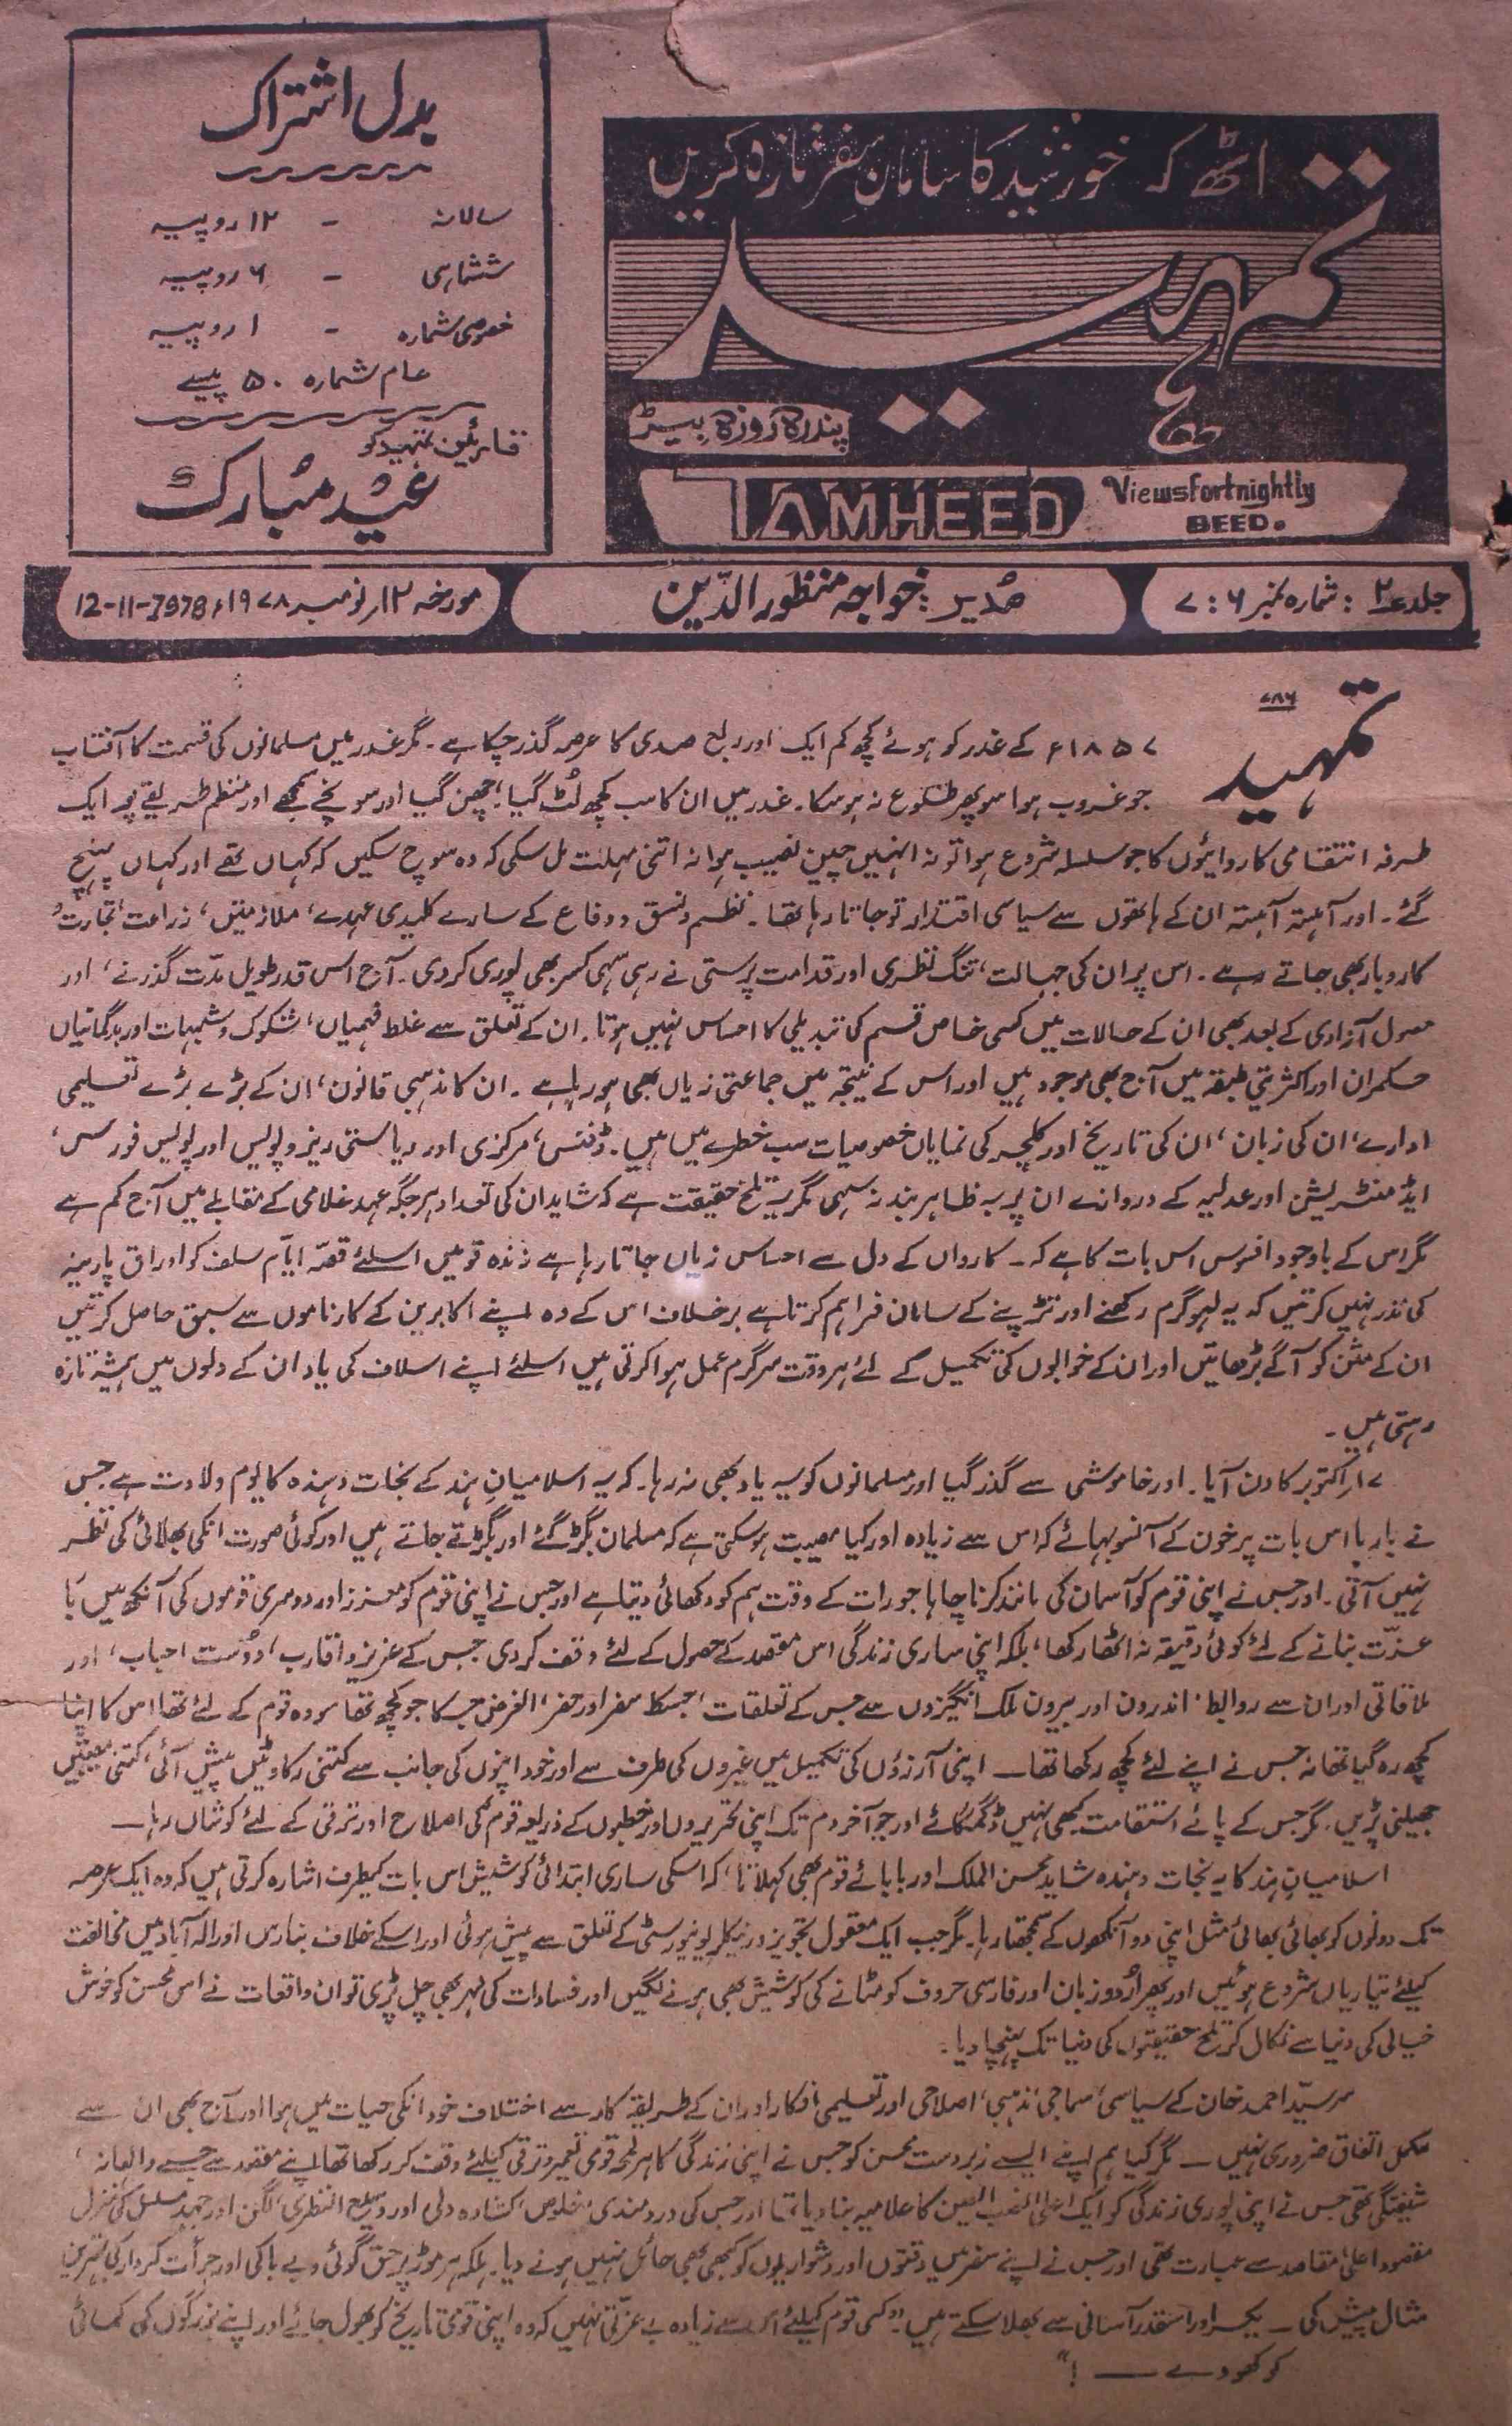 بدل اشتراک
سالانہ - ۱۲ روپیہ
ششماہی - ۶ روپیہ
خصوصی شمارہ - ۱ روپیہ
عام شمارہ ۵۰ پیسے
قارئین تمہید کو
عید مبارک
اٹھ کہ خورشید کا سامانِ سفر تازہ کریں
تمہید
پندرہ روزہ بیڑ
TAMHEED Views Fortnightly
BEED.
جلد ۲ : شمارہ نمبر ۶ : ۷
مُدیر : خواجہ منظور الدّین
مورخہ ۱۲ر نومبر ۱۹۷۸ء 12-11-1978
۷۸۶
تمہید
۱۸۵۷ء کے غدر کو ہوئے کچھ کم ایک اور ربع صدی کا عرصہ گذر چکا ہے۔ مگر غدر میں مسلمانوں کی قسمت کا آفتاب
جو غروب ہوا سو پھر طلوع نہ ہوسکا۔ غدر میں ان کا سب کچھ لُٹ گیا، چھن گیا اور سونچے سمجھے اور منظم طریقے پر ایک
طرفہ انتقامی کاروائیوں کا جو سلسلہ شروع ہوا تو نہ انہیں چین نصیب ہوا نہ اتنی مہلت مل سکی کہ وہ سوچ سکیں کہ کہاں تھے اور کہاں پہنچ
گئے۔ اور آہستہ آہستہ ان کے ہاتھوں سے سیاسی اقتدار تو جاتا رہا تھا۔ نظم و نسق و دفاع کے سارے کلیدی عہدے، ملازمتیں، زراعت، تجارت و
کاروبار بھی جاتے رہے۔ اس پر ان کی جہالت، تنگ نظری اور قدامت پرستی نے رہی سہی کسر بھی پوری کردی۔ آج اس قدر طویل مدّت گذرنے، اور
حصول آزادی کے بعد بھی ان کے حالات میں کسی خاص قسم کی تبدیلی کا احساس نہیں ہوتا۔ ان کے تعلق سے غلط فہمیاں، شکوک و شبہات اور بدگمانیاں
حکمران اور اکثریتی طبقہ میں آج بھی موجود ہیں اور اس کے نتیجہ میں جماعتی زیاں بھی ہو رہا ہے۔ ان کا مذہبی قانون، ان کے بڑے بڑے تعلیمی
ادارے، ان کی زبان، ان کی تاریخ اور کلچر کی نمایاں خصوصیات سب خطرے میں ہیں۔ ڈفنس، مرکزی اور ریاستی ریزرو پولیس اور پولیس فورس،
ایڈمنسٹریشن اور عدلیہ کے دروازے ان پر بہ ظاہر بند نہ سہی مگر یہ تلخ حقیقت ہے کہ شاید ان کی تعداد ہر جگہ عہد غلامی کے مقابلے میں آج کم ہے
مگر اس کے باوجود افسوس اس بات کا ہے کہ۔ کارواں کے دل سے احساس زیاں جاتا رہا ہے زندہ قومیں اسلئے قصّہ ایّام سلف کو اوراق پارینہ
کی نذر نہیں کرتیں کہ یہ لہو گرم رکھنے اور تڑپنے کے سامان فراہم کرتا ہے برخلاف اس کے وہ اپنے اکابرین کے کارناموں سے سبق حاصل کرتیں
ان کے مشن کو آگے بڑھاتیں اور ان کے خوابوں کی تکمیل کے لئے ہر وقت سرگرم عمل ہوا کرتی ہیں اسلئے اپنے اسلاف کی یاد ان کے دلوں میں ہمیشہ تازہ
رہتی ہیں۔
۱۷ر اکتوبر کا دن آیا۔ اور خاموشی سے گذر گیا اور مسلمانوں کو یہ یاد بھی نہ رہا۔ کہ یہ اسلامیانِ ہند کے نجات دہندہ کا یوم ولادت ہے جس
نے بارہا اس بات پر خون کے آنسو بہائے کہ اس سے زیادہ اور کیا مصیبت ہوسکتی ہے کہ مسلمان بگڑ گئے اور بگڑتے جاتے ہیں اور کوئی صورت انکی بھلائی کی نظر
نہیں آتی۔ اور جس نے اپنی قوم کو آسمان کی مانند کرنا چاہا جو رات کے وقت ہم کو دکھائی دیتا ہے اور جس نے اپنی قوم کو معزز اور دوسری قوموں کی آنکھ میں با
عزّت بنانے کے لئے کوئی دقیقہ نہ اٹھا رکھا، بلکہ اپنی ساری زندگی اس مقصد کے حصول کے لئے وقف کردی جس کے عزیز و اقارب، دوست احباب، اور
ملاقاتی اور ان سے روابط، اندرون اور بیرون ملک انگیزوں سے جس کے تعلقات، جسکا سفر اور حضر، الغرض جسکا جو کچھ تھا سو وہ قوم کے لئے تھا اس کا اپنا
کچھ رہ گیا تھا نہ جس نے اپنے لئے کچھ رکھا تھا — اپنی آرزؤں کی تکمیل میں غیروں کی طرف سے اور خود اپنوں کی جانب سے کتنی رکاوٹیں پیش آئی، کتنی مصیبتیں
جھیلنی پڑیں۔ مگر جس کے پائے استقامت کبھی نہیں ڈگمگائے اور جو آخر دم تک اپنی تحریروں اور خطبوں کے ذریعہ قوم کی اصلاح اور ترقی کے لئے کوشاں رہا —
اسلامیانِ ہند کا یہ نجات دہندہ شاید محسن الملک اور بابائے قوم بھی کہلاتا، کہ اسکی ساری ابتدائی کوششیں اس بات کیطرف اشارہ کرتی ہیں کہ وہ ایک عرصہ
تک دونوں کو بھائی بھائی مثل اپنی دو آنکھوں کے سمجھتا رہا۔ مگر جب ایک معقول تجویز ورنیکلر یونیورسٹی کے تعلق سے پیش ہوئی اور اسکے خلاف بنارس اور الہ آباد میں مخالفت
کیلئے تیاریاں شروع ہوئیں اور پھر اُردو زبان اور فارسی حروف کو مٹانے کی کوشیش بھی ہونے لگیں اور فسادات کی لہر بھی چل پڑی تو ان واقعات نے اس محسن کو خوش
خیالی کی دنیا سے نکال کر تلخ حقیقتوں کی دنیا تک پہنچا دیا۔
سرسیّد احمد خان کے سیاسی، سماجی، مذہبی، اصلاحی اور تعلیمی افکار اور ان کے طریقۂ کار سے اختلاف خود انکی حیات میں ہوا اور آج بھی ان سے
مکمل اتفاق ضروری نہیں — مگر کیا ہم اپنے ایسے زبردست محسن کو جس نے اپنی زندگی کا ہر لمحہ قومی تعمیر و ترقی کیلئے وقف کر رکھا تھا اپنے مقصد سے جسے والہانہ،
شیفتگی تھی جس نے اپنی پوری زندگی کو ایک اعلیٰ نصب العین کا علامیہ بنا دیا تھا اور جس کی درد مندی، خلوص، کشادہ دلی اور وسیع النظری، لگن اور جہد مسلسل کی منزل
مقصود اعلیٰ مقاصد سے عبارت تھی اور جس نے اپنے سفر میں دقتوں اور دشواریوں کو کبھی بھی حائل نہیں ہونے دیا۔ بلکہ ہر موڑ پر حق گوئی و بے باکی اور جرأت کردار کی بہترین
مثال پیش کی — یکسر اور اسقدر آسانی سے بھلا سکتے ہیں "کسی قوم کیلئے اس سے زیادہ بے عزّتی نہیں کہ وہ اپنی قومی تاریخ کو بھول جائے اور اپنے بزرگوں کی کمائی
کو کھو دے — !"